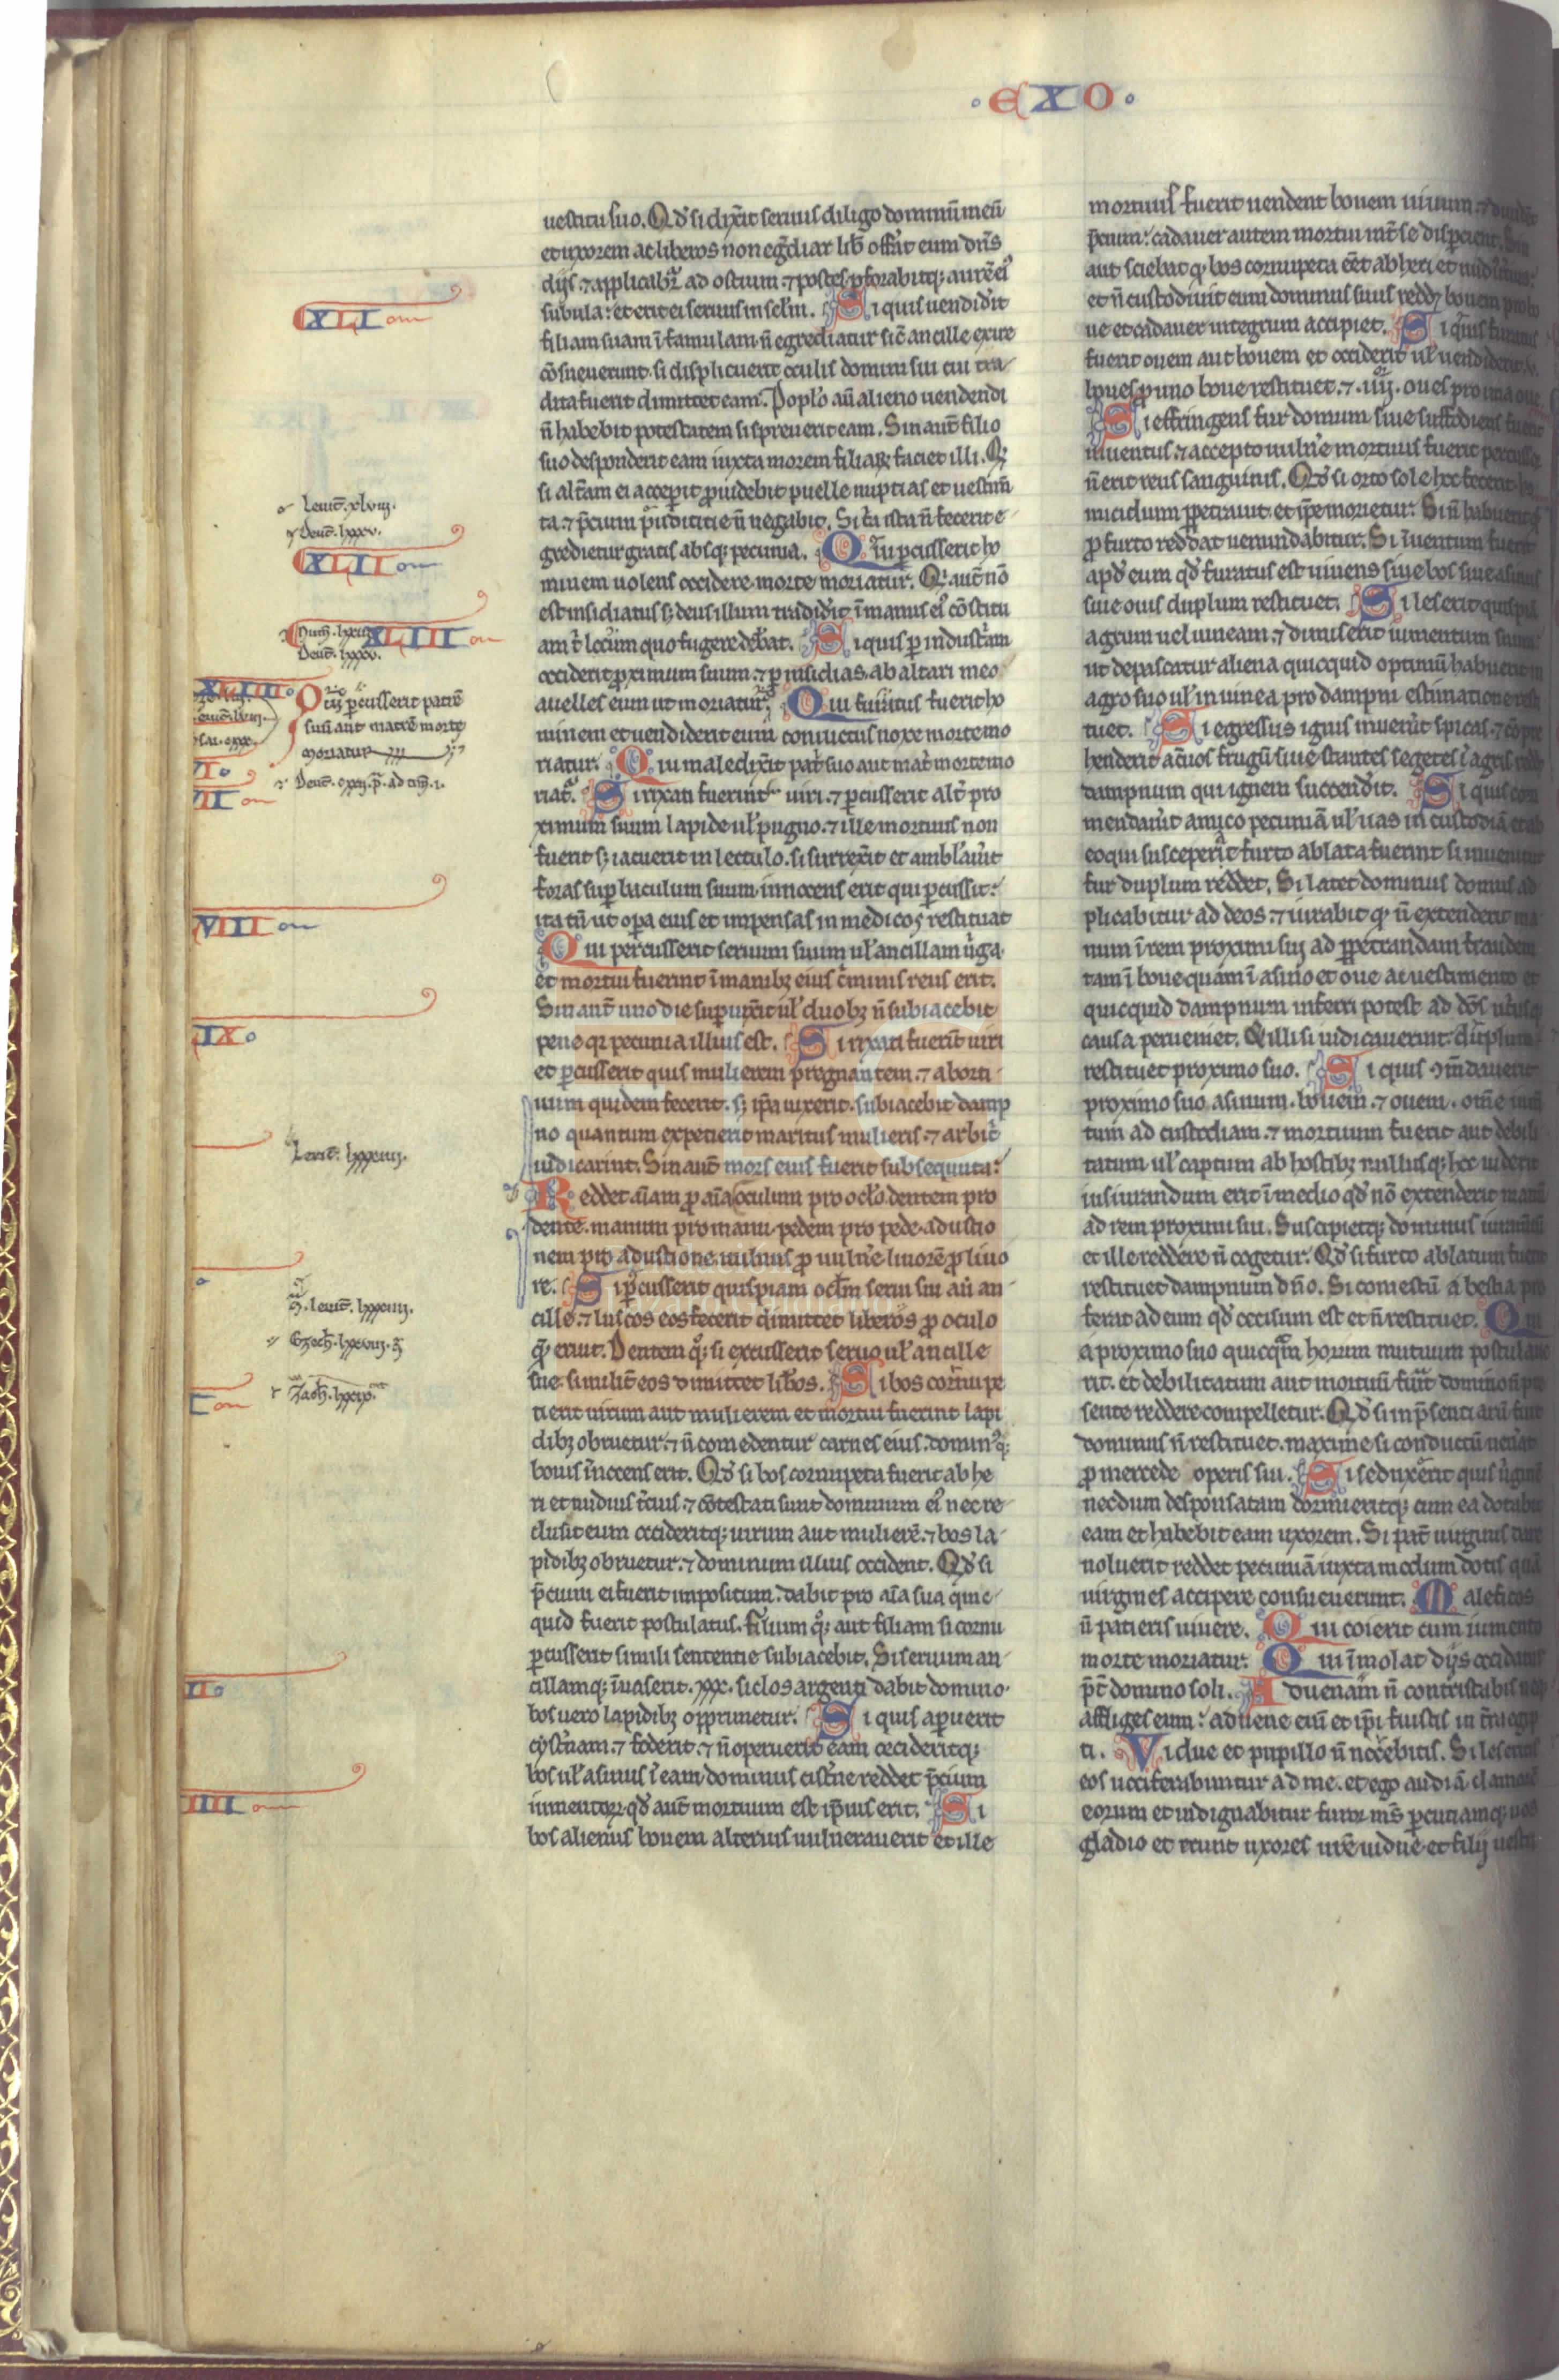 ·EXO·
uestitu suo. Qd̕ si dix̕it seruus diligo dominū meū
et uxorem ac liberos non eg̅diar lib̕ off̕at eum dn̄s
dijs ⁊ applicabit̕ ad ostium ⁊ postes ꝑforabitq; aurē ei᷒
subula: et erit ei seruus in sc̕lm. Si quis uendid̕it
filiam suam ī famulam n̄ egrediatur sic̄ ancille exire
cōsueuerunt. si displicuerit oculis domini sui cui tra
dita fuerit dimittet eam. Poplo aū alieno uendendi
n̄ habebit potestatem si spreuerit eam. Sin aut̄ filio
suo desponderit eam iuxta morem filiaꝝ faciet illi. Qꝫ
si alt̄am ei acceꝑit ꝓuidebit puelle nuptias et uestim̄
ta ⁊ p̄cium pudicitie n̄ negabit. Si t̕a ista n̄ fecerit e
gredietur gratis absq; pecunia. Qui ꝑcusserit ho
minem uolens occidere morte moriatur. Qi aut̄ nō
est insidiatus sꝫ deus illum tradid̕it ī manus ei᷒ cōstitu
am t̕ locum quo fugere deb̕at. Si quis ꝑ industriam
occiderit ꝓximum suum ⁊ ꝑ insidias. ab altari meo
auelles eum ut moriatur. Qui furatus fuerit ho
minem et uendiderit eum conuictus noxe morte mo
riatur. Qui maledix̕it pat̕ suo aut mat̕ morte mo
riat̕. Si rixati fuerint uiri ⁊ ꝑcusserit alt̕ pro
ximum suum lapide ul̕ pugno ⁊ ille mortuus non
fuerit sꝫ iacuerit in lectulo. si surrex̕it et ambl̕au̕it
foras sup̲ baculum suum innocens erit qui ꝑcussit:
ita tn̄ ut oꝑa eius et impensas in medicos restituat
Qui percusserit seruum suum ul̕ ancillam u̕ga
et mortui fuerint ī manibꝫ eius c̕minis reus erit.
Sin aut̄ uno die suꝑuix̕it ul̕ duobꝫ n̄ subiacebit
pene qꝛ pecunia illius est. Si rixati fuerīt uiri
et ꝑcusserit quis mulierem pregnantem ⁊ aborti
uum quidem fecerit. sꝫ ip̄a uixerit. subiacebit damp
no quantum expetierit maritus mulieris ⁊ arbit̕
iudicarint. Sin aut̄ mors eius fuerit subsequuta:
Reddet aīam ꝓ aīa oculum pro oclo dentem pro
dente. manum pro manu pedem pro pede adustio
nem pro adustione uulnus ꝓ uuln̕e liuorē ꝓ liuo
re. Si ꝑcusserit quispiam oclm serui sui aū an
cille ⁊ luscos eos fecerit dimittet liberos ꝓ oculo
q̄ eruit. Dentem qꝫ si excusserit seruo ul̕ ancille
sue similit̕ eos dimittet lib̕os. Si bos cornu pe
tierit uirum aut mulierem et mortui fuerint lapi
dibꝫ obruetur ⁊ n̄ comedentur carnes eius. domin᷒ qꝫ
bouis īnocens erit. Qd̕ si bos cornupeta fuerit ab he
ri et nudius t̕cius ⁊ cōtestati sunt dominum ei᷒ nec re
clusit eum occideritq; uirum aut mulierē ⁊ bos la
pidibꝫ obruetur ⁊ dominum illius occident. Qd̕ si
p̄cium ei fuerit impositum. dabit pro aīa sua quic
quid fuerit postulatus. filium qꝫ aut filiam si cornu
ꝑcusserit simili sententie subiacebit. Si seruum an
cillamq; īuaserit. xxx. siclos argenti dabit domino.
bos uero lapidibꝫ opprimetur. Si quis aꝑuerit
cyst̕nam ⁊ foderit ⁊ n̄ operuerit eam occideritq;
bos ul̕ asinus ī eam dominus cist̕ne reddet p̄cium
iumentoꝝ qd̕ aut̄ mortuum est ip̄ius erit. Si
bos alienus bouem alterius uulnerauerit et ille
mortuus fuerit uendent bouem uiuum ⁊ diuident
p̄cium: cadauer autem mortui int̕ se disꝑcient. Sin
aut sciebat qꝫ bos cornupeta eēt ab heri et nudius
et n̄ custodiuit eum dominus suus reddꝫ bouem pro bo
ue et cadauer integrum accipiet. Si quis furatus
fuerit ouem aut bouem et occiderit ul̕ uendiderit v.
boues pro uno boue restituet ⁊ iiij. oues pro una oue
Si effringens fur domum siue suffodiens fuerit
inuentus ⁊ accepto uuln̕e mortuus fuerit percussor
n̄ erit reus sanguinis. Qd̕ si orto sole hoc fecerit ho
micidium ꝑpetrauit et ip̄e morietur. Si n̄ habuerit qd̕
ꝓ furto reddat uenundabitur. Si īuentum fuerit
apd̕ eum qd̕ furatus est uiuens siue bos siue asinus
siue ouis duplum restituet. Si leserit quispiam
agrum uel uineam ⁊ dimiserit iumentum suum
ut depascatur aliena quicquid optimū habuerit in
agro suo ul̕ in uinea pro dampni estimatione resti
tuet. Si egressus ignis inuen̕it spicas ⁊ cōpre
henderit ac̕uos frugū siue stantes segetes ī agris reddet
dampnum qui ignem succend̕it. Si quis com
mendau̕it amico pecuniā ul̕ uas in custodiā et ab
eo qui susceperat furto ablata fuerint si inuenitur
fur duplum reddet. Si latet dominus domus ad
plicabitur ad deos ⁊ iurabit qꝫ n̄ extenderit ma
num ī rem proximi sui ad ꝑpetrandam fraudem
tam ī boue quam ī asino et oue ac uestimento et
quicquid dampnum inferri potest ad dōs ut̕usq;
causa perueniet. Et illi si iudicauerint duplum
restituet proximo suo. Si quis ꝯm̄dauerit
proximo suo asinum. bouem ⁊ ouem. om̄e iumen
tum ad custodiam ⁊ mortuum fuerit aut debili
tatum ul̕ captum ab hostibꝫ nullusq; hoc uiderit
iusiurandum erit ī medio qd̕ nō extenderit manū
ad rem proximi sui. Suscipietq; dominus iuramētū
et ille reddere n̄ cogetur. Qd̕ si furto ablatum fuerit
restituet dampnum dn̄o. Si comestū a bestia pro
ferat ad eum qd̕ occisum est et n̄ restituet. Qui
a proximo suo quicq̄m horum mutuum postulaue
rit. et debilitatum aut mortuū fu̕it domino n̄ pre
sente reddere compelletur. Qd̕ si inp̄senti arū fuit
dominus n̄ restituet. maxime si conductū uen̕at
ꝓ mercede operis sui. Si sedux̕erit quis u̕ginē
necdum desponsatam dormieritq; cum ea dotabit
eam et habebit eam uxorem. Si pat̕ uirginis dare
noluerit reddet pecuniā iuxta modum dotis quā
uirgines accipere consueuerunt. Maleficos
n̄ patieris uiuere. Qui coierit cum iumento
morte moriatur. Qui īmolat dijs occidatur
p̄t̄ domino soli. Aduenam n̄ contristabis neqꝫ
affliges eum: aduene enī et ip̄i fuistis in t̄ra egip
ti. Vidue et pupillo n̄ nocebitis. Si leseritis
eos uociferabuntur ad me. et ego audiā clamorē
eorum et indignabitur furor m̄s ꝑcutiamq; uos
gladio et erunt uxores ur̄e uidue et filij uestri
XLI om
Leuit̄. xlviij.
Deut̄. lxxxv.
XLII om
Num̄. lxxiii
XLIII om
Deut̄. lxxxv.
XLIIII o
Qui ꝑcusserit patrē
suū aut matrē morte
moriatur
Deut̄. cxxij. p̄. ad tim̄. i.
VI o
VII om
VIII om
IX o
Leuit̄. lxxxiiij.
Leuit̄. lxxxiiij.
Ezech̄. lxxviij. ꝫ
Zach̄. lxxix.
L om
II o
IIII om